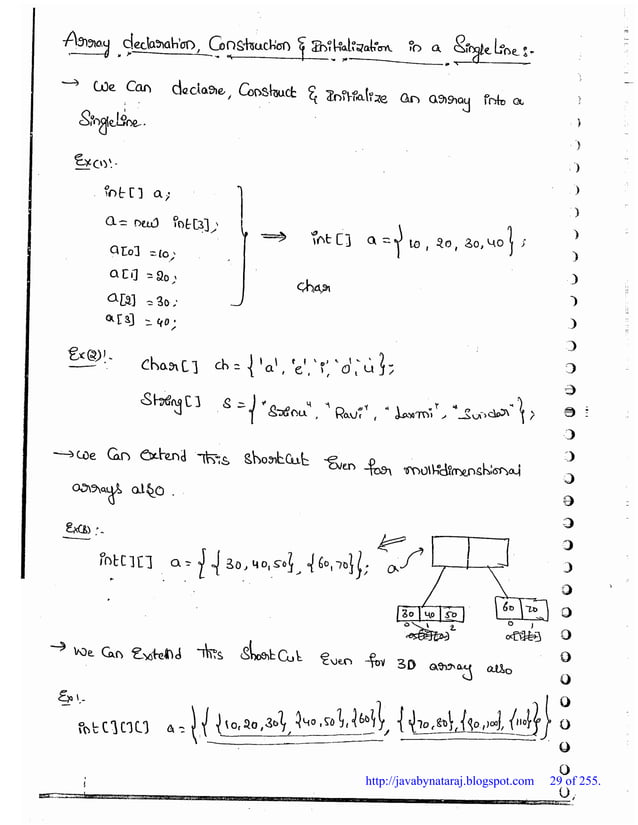 Array declaration, Construction & Initialization in a Single Line:-
→ We Can declare, Construct & Initialize an array into a
Single Line.
Ex(1):-
int[] a;
a = new int[3];
a[0] = 10;
a[1] = 20;
a[2] = 30;
a[3] = 40;
⇒ int[] a = {10, 20, 30, 40};
char
Ex(2):-
Char[] ch = {'a', 'e', 'i', 'o', 'u'};
String[] s = {"Srinu", "Ravi", "Laxmi", "Sundar"};
→ We Can extend This Shortcut Even for multidimenshional
arrays also.
Ex(3):-
int[][] a = {{30, 40, 50}, {60, 70}};
a
30 40 50
0 1 2
60 70
0 1
→ We Can Extend This ShortCut Even for 3D array also
Ex:-
int[][][] a = {{{10, 20, 30}, {40, 50}, {60}}, {{70, 80}, {90, 100}, {110}}}
http://javabynataraj.blogspot.com 29 of 255.